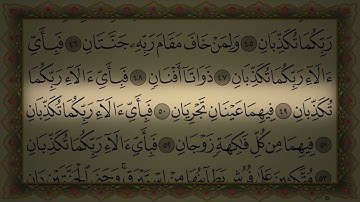 رَبِّكُمَا تُكَذِّبَانِ ٤٥ وَلِمَنْ خَافَ مَقَامَ رَبِّهِۦ جَنَّتَانِ ٤٦ فَبِأَىِّ
ءَالَآءِ رَبِّكُمَا تُكَذِّبَانِ ٤٧ ذَوَاتَآ أَفْنَانٍ ٤٨ فَبِأَىِّ ءَالَآءِ رَبِّكُمَا
تُكَذِّبَانِ ٤٩ فِيهِمَا عَيْنَانِ تَجْرِيَانِ ٥٠ فَبِأَىِّ ءَالَآءِ رَبِّكُمَا تُكَذِّبَانِ
٥١ فِيهِمَا مِن كُلِّ فَٰكِهَةٍ زَوْجَانِ ٥٢ فَبِأَىِّ ءَالَآءِ رَبِّكُمَا تُكَذِّبَانِ
٥٣ مُتَّكِـِٔينَ عَلَىٰ فُرُشٍۭ بَطَآئِنُهَا مِنْ إِسْتَبْرَقٍ ۚ وَجَنَى ٱلْجَنَّتَيْنِ دَانٍ